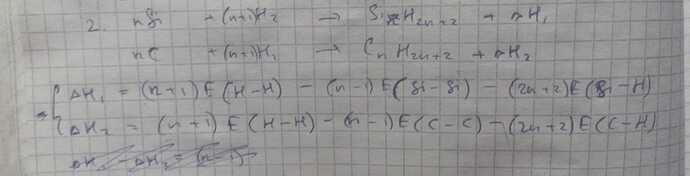 2. nSi + (n+1)H₂ → SinH2n+2 + ΔH₁
nC + (n+1)H₂ → CnH2n+2 + ΔH₂
⇒ { ΔH₁ = (n+1)E(H-H) - (n-1)E(Si-Si) - (2n+2)E(Si-H)
ΔH₂ = (n+1)E(H-H) - (n-1)E(C-C) - (2n+2)E(C-H)
ΔH₁ - ΔH₂ = (n-1)